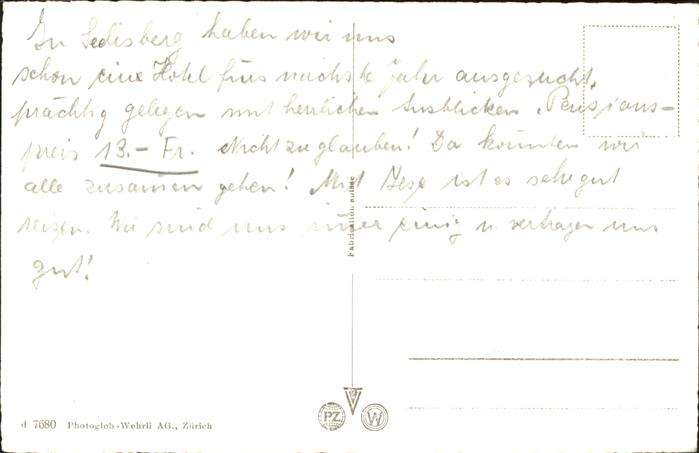 In Sedisberg haben wir uns
schon eine Hotel fürs nächste Jahr ausgesucht,
prächtig gelegen mit herrlichen Ausblicken. Pensions-
preis 13.- Fr. Nicht zu glauben! Da könnten wir
alle zusamen gehen! Mit ist es sehr gut
reisen. Wir sind uns imer einig u vertragen uns
gut!
Fabrication suisse
PZ W
d 7680 Photoglob-Wehrli AG., Zürich